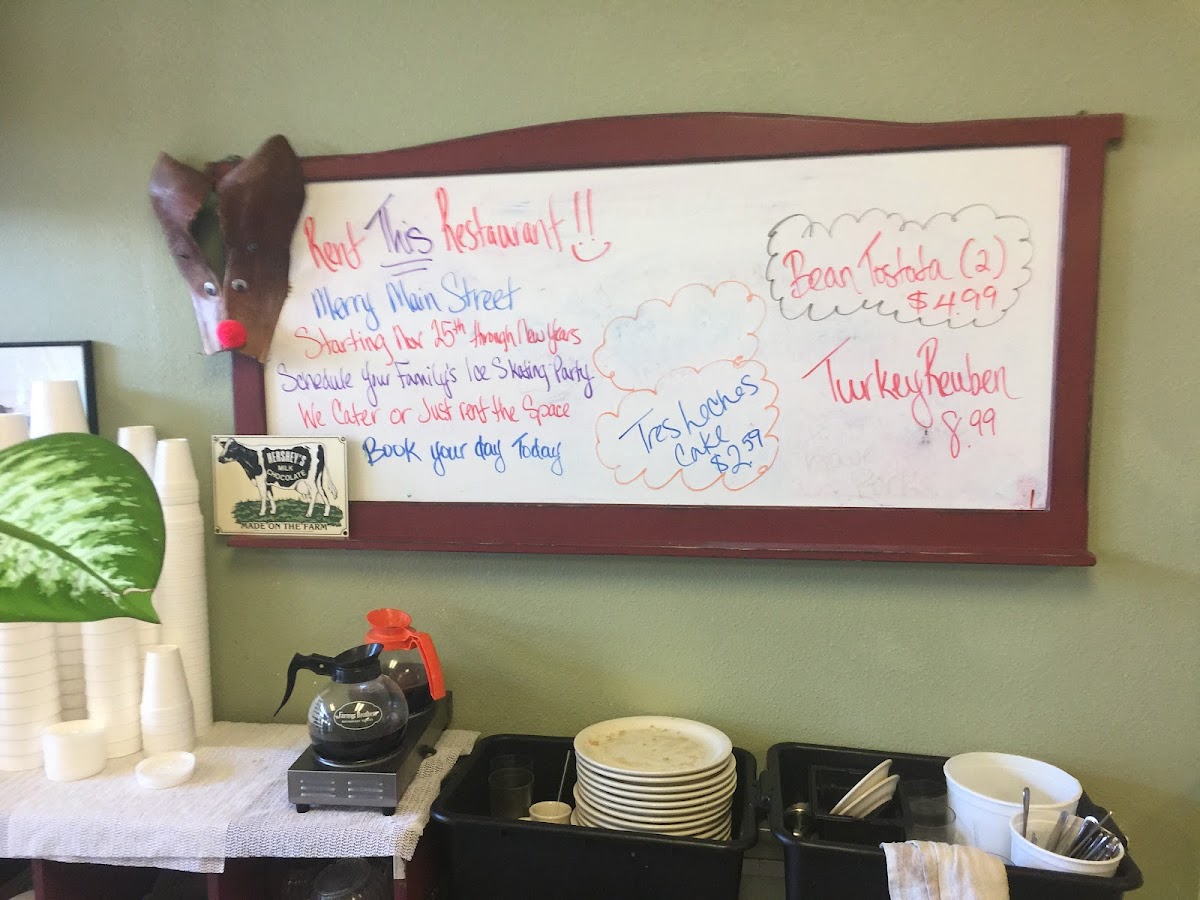 Rent This Restaurant!!
Merry Main Street
Starting Nov 25th through New Years
Schedule Your Family's Ice Skating Party
We Cater or Just rent the Space
Book your day Today
Tres Leches
Cake
$2.59
Bean Tostada (2)
$4.99
Turkey Reuben
8.99
HERSHEY'S
MILK
CHOCOLATE
MADE ON THE FARM
Farmer Brothers